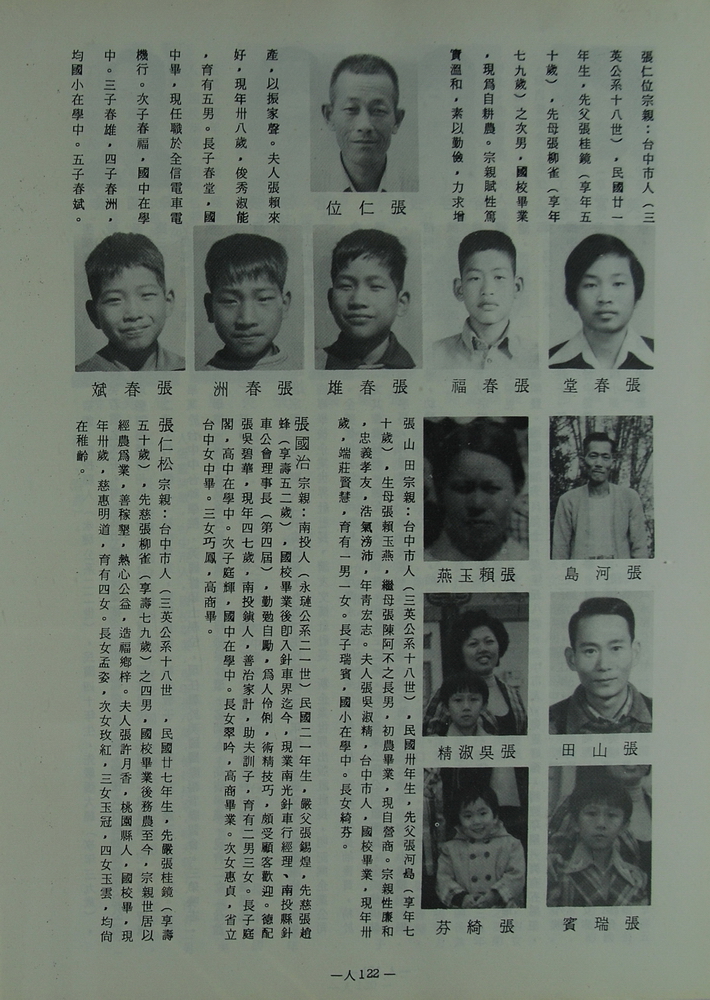 張仁位宗親：台中市人（三
英公系十八世），民國廿一
年生，先父張桂鏡（享年五
十歲），先母張柳雀（享年
七九歲）之次男，國校畢業
，現爲自耕農。宗親賦性篤
實溫和，素以勤儉，力求增
產，以振家聲。夫人張賴來
好，現年卅八歲，俊秀淑能
，育有五男。長子春堂，國
中畢，現任職於全信電車電
機行。次子春福，國中在學
中。三子春雄，四子春洲，
均國小在學中。五子春斌。
張仁位
張春堂
張春福
張春雄
張春洲
張春斌
張山田宗親：台中市人（三英公系十八世），民國卅年生，先父張河島（享年七
十歲），生母張賴玉燕，繼母張陳阿不之長男，初農畢業，現自營商。宗親性廉和
，忠義孝友，浩氣滂沛，年靑宏志。夫人張吳淑精，台中市人，國校畢業，現年卅
歲，端莊賢慧，育有一男一女。長子瑞賓，國小在學中。長女綺芬。
張河島
張賴玉燕
張山田
張吳淑精
張瑞賓
張綺芬
張國治宗親：南投人（永璉公系二一世）民國二一年生，嚴父張錫煌，先慈張趙
蜂（享壽五二歲），國校畢業後卽入針車界迄今，現業南光針車行經理、南投縣針
車公會理事長（第四屆），勤勉自勵，爲人伶俐，術精技巧，頗受顧客歡迎。德配
張吳碧華，現年四七歲，南投鎭人，善治家計，助夫訓子，育有二男三女。長子庭
閣，高中在學中。次子庭輝，國中在學中。長女翠吟，高商畢業。次女惠貞，省立
台中女中畢。三女巧鳳，高商畢。
張仁松宗親：台中市人（三英公系十八世，民國廿七年生，先嚴張桂鏡（享壽
五十歲），先慈張柳雀（享壽七九歲）之四男，國校畢業後務農至今，宗親世居以
經農爲業，善稼墾，熱心公益，造福鄉梓。夫人張許月香，桃園縣人，國校畢，現
年卅歲，慈惠明道，育有四女。長女孟姿，次女玫紅，三女玉冠，四女玉雲，均尙
在稚齡。
—人122—